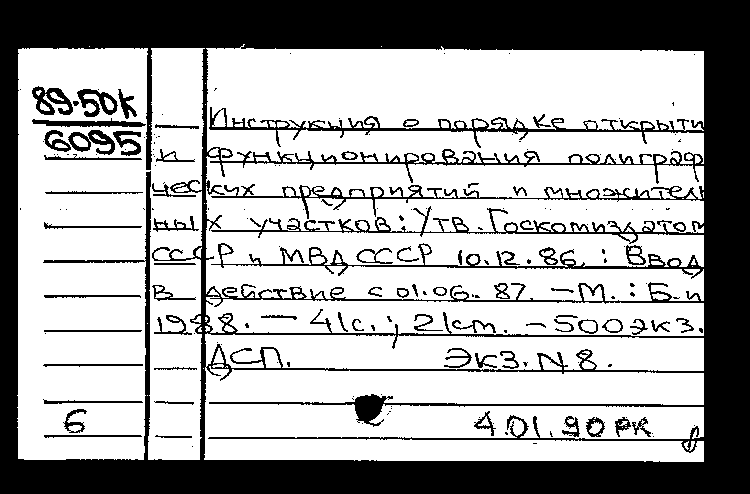 89-50К
6095
Инструкция о порядке открыти
и функционирования полиграф
ческих предприятий и множитель
ных участков: Утв. Госкомиздатом
СССР и МВД СССР 10.12.86. : Ввод
в действие с 01.06. 87. – М. : Б.и
1988. – 41с. ; 21см. – 500экз.
ДСП. ЭКЗ. N 8.
6 4.01.90 РК